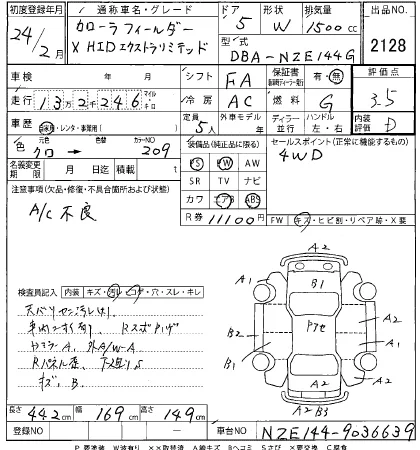 初度登録年月 通称車名・グレード ドア 形状 排気量 出品NO.
24/2月 カローラフィールダー X HIDエクストラリミテッド 5 W 1500cc
型式 DBA-NZE144G 2128
車検 年 月 シフト FA 保証書 有・無 評価点
走行 13万2246 マイル キロ 冷房 AC 燃料 G 3.5
車歴 自家用・レンタ・事業用( ) 定員 5人 外車モデル 年 ディーラー 並行 ハンドル 左・右 内装評価 D
色 元色 クロ → 色替 カラーNO 209 装備品(純正品に限る) セールスポイント(正常に機能するもの)
PS PW AW 4WD
名義変更期限 月 日迄 積載 t SR TV ナビ
注意事項(欠品・修復・不具合箇所および状態) カワ エアB ABS
A/C不良 R券 11100円 FW キズ・ヒビ割・リペア跡・X要
A2
A1 B1 A1
B2 Pアセ A2
B1 A1
A2 A2
A2 B3
検査員記入 内装 キズ・汚レ・コゲ・穴・スレ・キレ
キズ、B.
長さ 442cm 幅 169cm 高さ 149cm
登録NO 車台NO NZE144-9036639
P 要塗装 W波有り ××取替済 A線キズ Bヘコミ Sさび ×要交換 C腐食